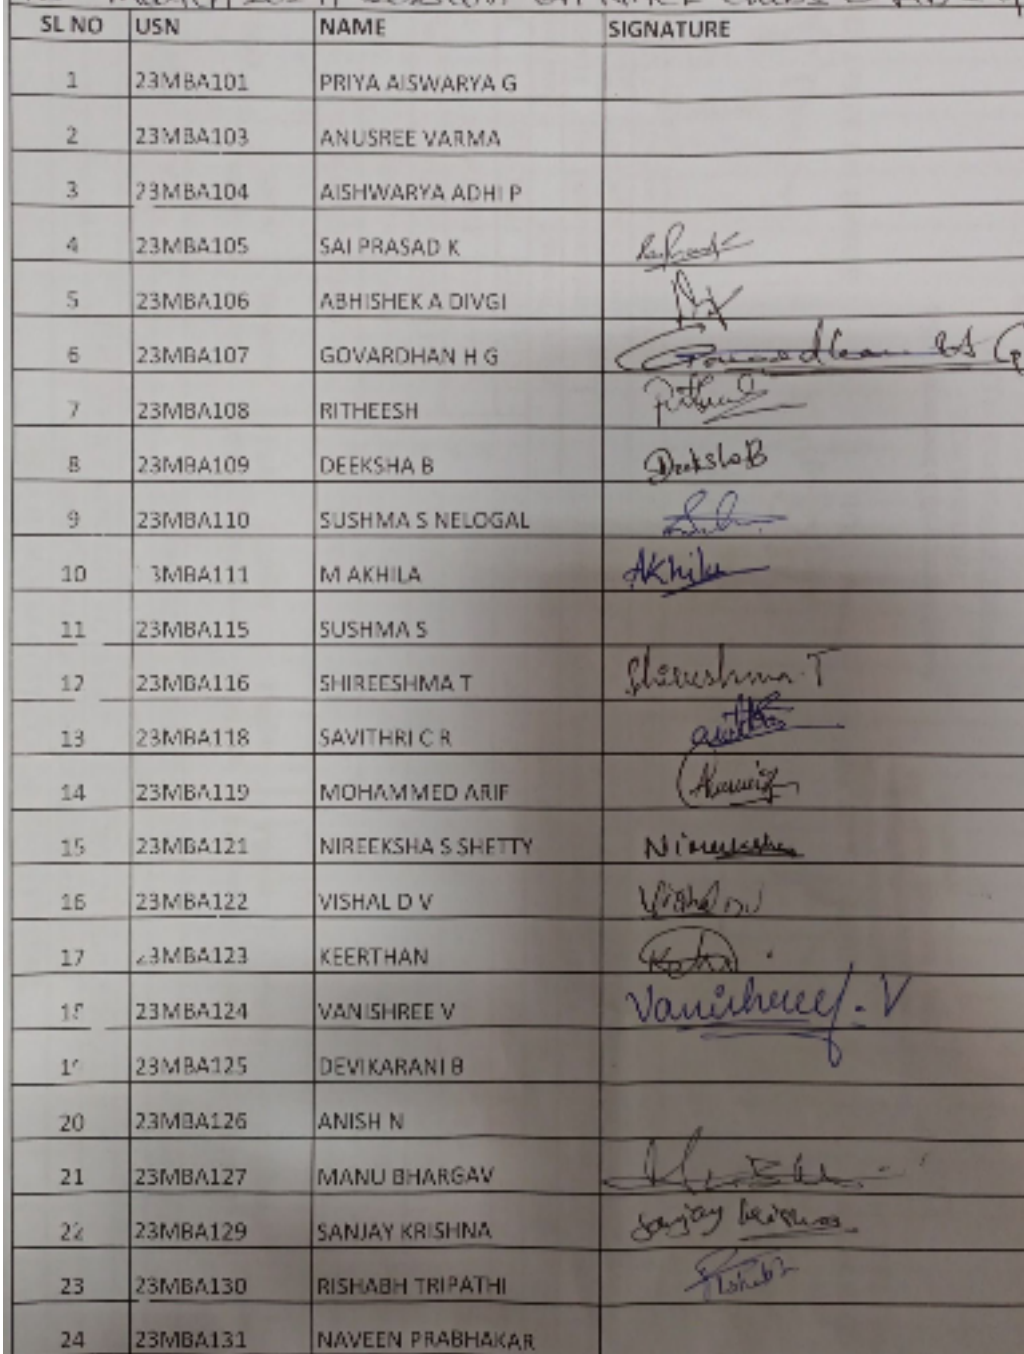 SL NO USN NAME SIGNATURE
1 23MBA101 PRIYA AISWARYA G
2 23MBA103 ANUSREE VARMA
3 23MBA104 AISHWARYA ADHI P
4 23MBA105 SAI PRASAD K
5 23MBA106 ABHISHEK A DIVGI
6 23MBA107 GOVARDHAN H G
7 23MBA108 RITHEESH
8 23MBA109 DEEKSHA B DeekshaB
9 23MBA110 SUSHMA S NELOGAL
10 3MBA111 M AKHILA Akhila
11 23MBA115 SUSHMA S
12 23MBA116 SHIREESHMA T Shireeshma.T
13 23MBA118 SAVITHRI C R
14 23MBA119 MOHAMMED ARIF
15 23MBA121 NIREEKSHA S SHETTY Nireeksha
16 23MBA122 VISHAL D V Vishal DV
17 23MBA123 KEERTHAN
18 23MBA124 VANISHREE V Vanishree.V
23MBA125 DEVIKARANI B
20 23MBA126 ANISH N
21 23MBA127 MANU BHARGAV
22 23MBA129 SANJAY KRISHNA Sanjay Krishna
23 23MBA130 RISHABH TRIPATHI Rishabh
24 23MBA131 NAVEEN PRABHAKAR